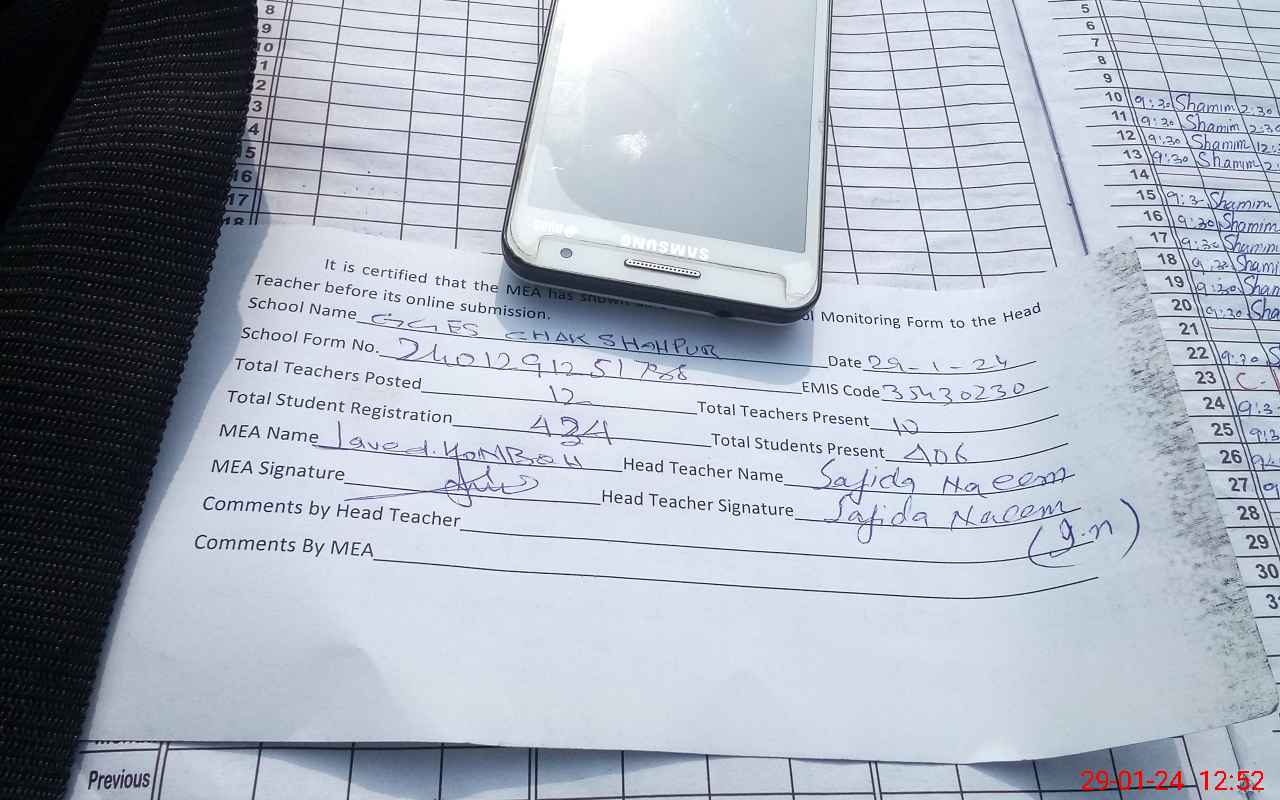 8
9
10
11
12
13
14
15
16
17
18
5
6
7
8
9
10 9:30 Shamim 2:30
11 9:30 Shamim 2:30
12 9:30 Shamim 12:
13 9:30 Shamim 2:
14
15 9:3- Shamim
16 9:30 Shamim
17 9:30 Shamim
18 9:30 Shami
19 9:30 Sham
20 9:30 Sha
21
22 9:30 S
23 C.
24 9:3
25 9:3
26
27 9
28
29
30
3
SAMSUNG
It is certified that the MEA has shown Monitoring Form to the Head
Teacher before its online submission.
School Name GGES CHAK SHAHPUR Date 29-1-24
School Form No. EMIS Code 35430230
Total Teachers Posted 12 Total Teachers Present 10
Total Student Registration 434 Total Students Present 406
MEA Name Javed. Head Teacher Name Sajida Naeem
MEA Signature Head Teacher Signature Sajida Naeem
(g.n)
Comments by Head Teacher
Comments By MEA
Previous
29-01-24 12:52